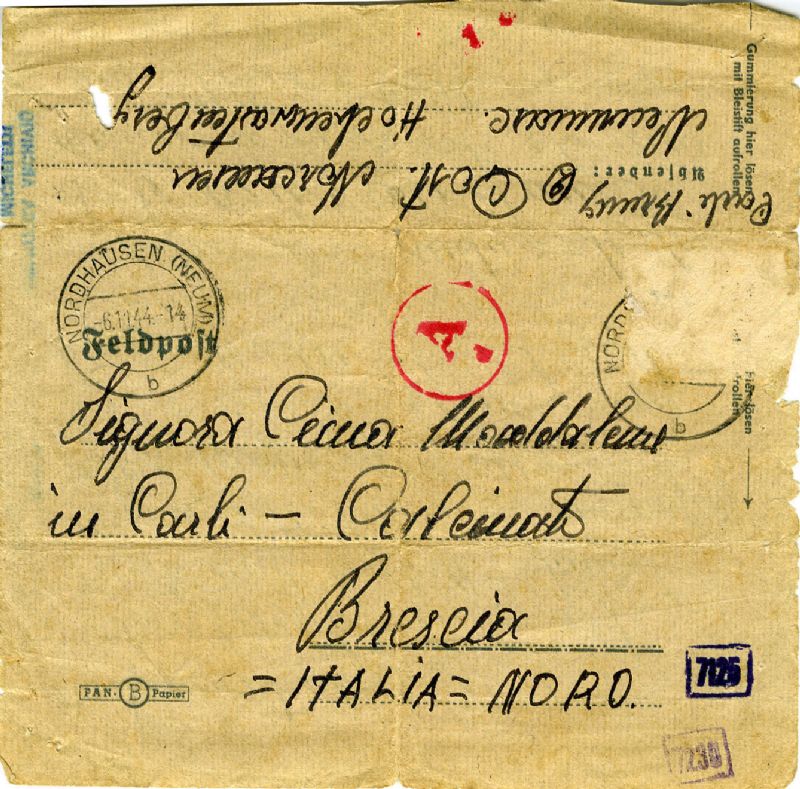 Gummierung hier lösen
mit Bleistift aufrollen
Absender:
Carli Bruno
Post. Norcausen
Neummarc. Hochenwartenberg
NORDHAUSEN (NEUM)
-6.11.44-14
b
Feldpost
A
NORD
b
hier lösen
frollen
Signora Cima Maddalena
in Carli - Calcinato
Brescia
= ITALIA = NORD.
PAN. B Papier
7125
7238